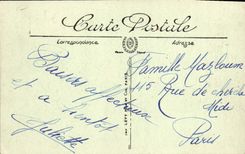 Carte Postale
Correspondance
Adresse
Baisers affectueux
et à bientôt
Juliette
Famille Mazloum
115 Rue du Cherche
Midi
Paris